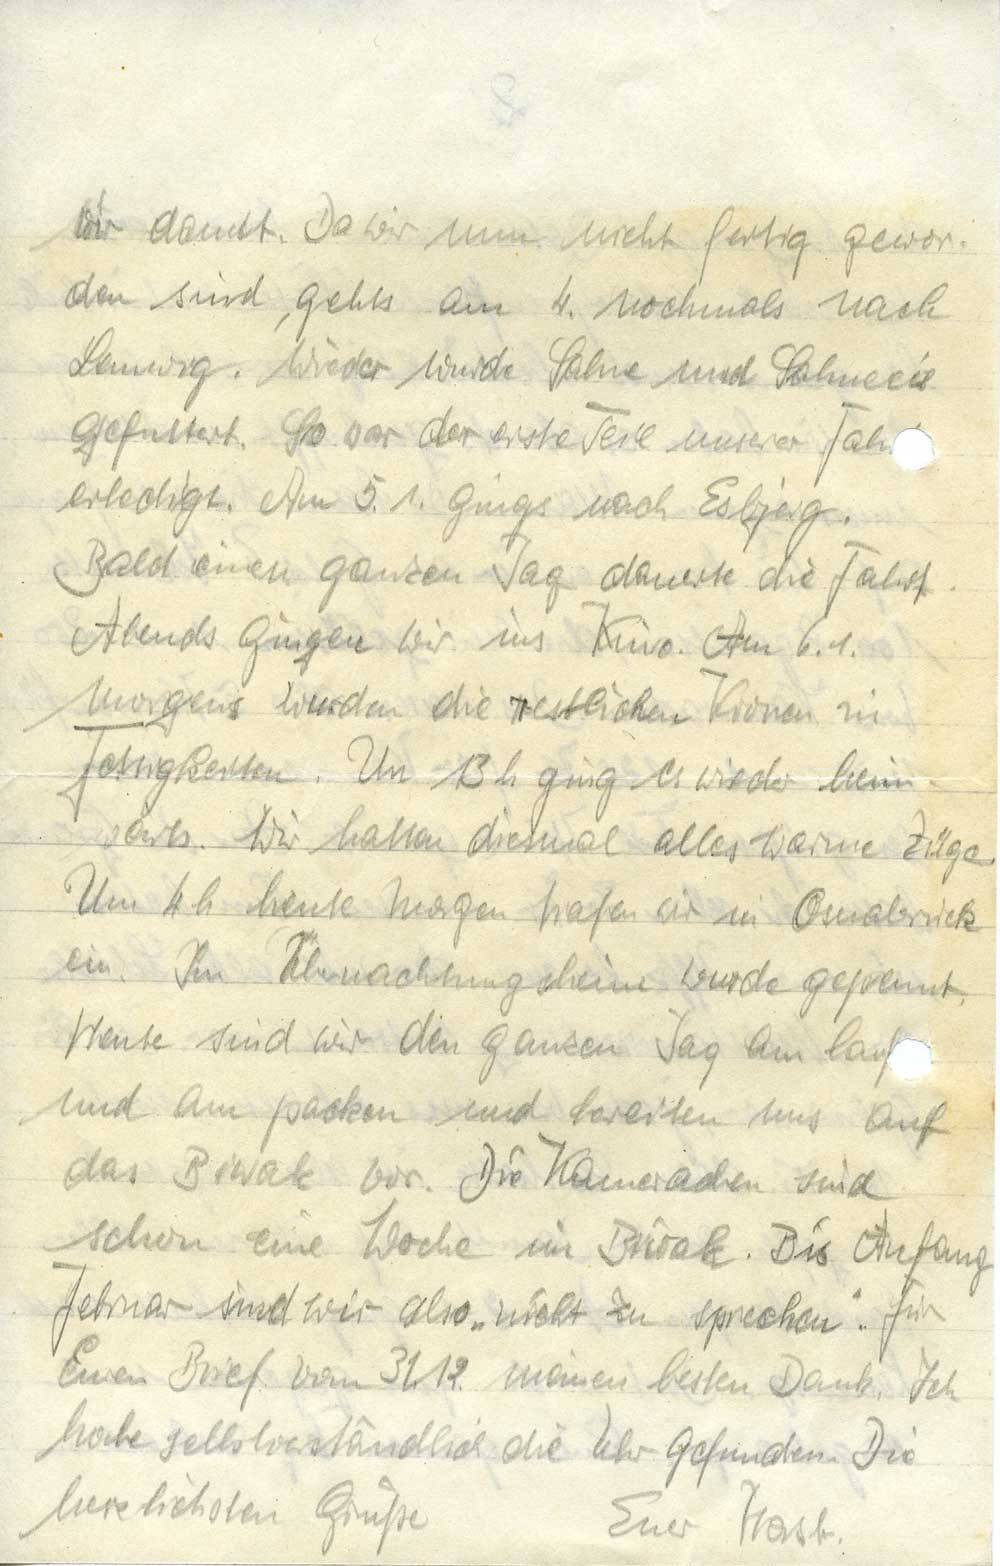 wir damit. Da wir nun nicht fertig gewor-
den sind, gehts am 4. nochmals nach
Lemvig. Wieder wurde Sahne und Sahneeis
gefuttert. So war der erste Teil unserer Fahrt
erledigt. Am 5.1. gings nach Esbjerg.
Bald einen ganzen Tag dauerte die Fahrt.
Abends gingen wir ins Kino. Am 6.1.
morgens wurden die restlichen Kronen in
Um 13 h ging es wieder heim-
wärts. Wir hatten diesmal alles warme Züge.
Um 4 h heute morgen trafen wir in Osnabrück
ein. Im Übernachtungsheim wurde gepennt.
Heute sind wir den ganzen Tag am lauf
und am packen und bereiten uns auf
das Biwak vor. Die Kameraden sind
schon eine Woche im Biwak. Bis Anfang
Februar sind wir also „nicht zu sprechen“. Für
Euren Brief vom 31.12. meinen besten Dank. Ich
habe selbstverständlich die Uhr gefunden. Die
herzlichsten Grüße Euer